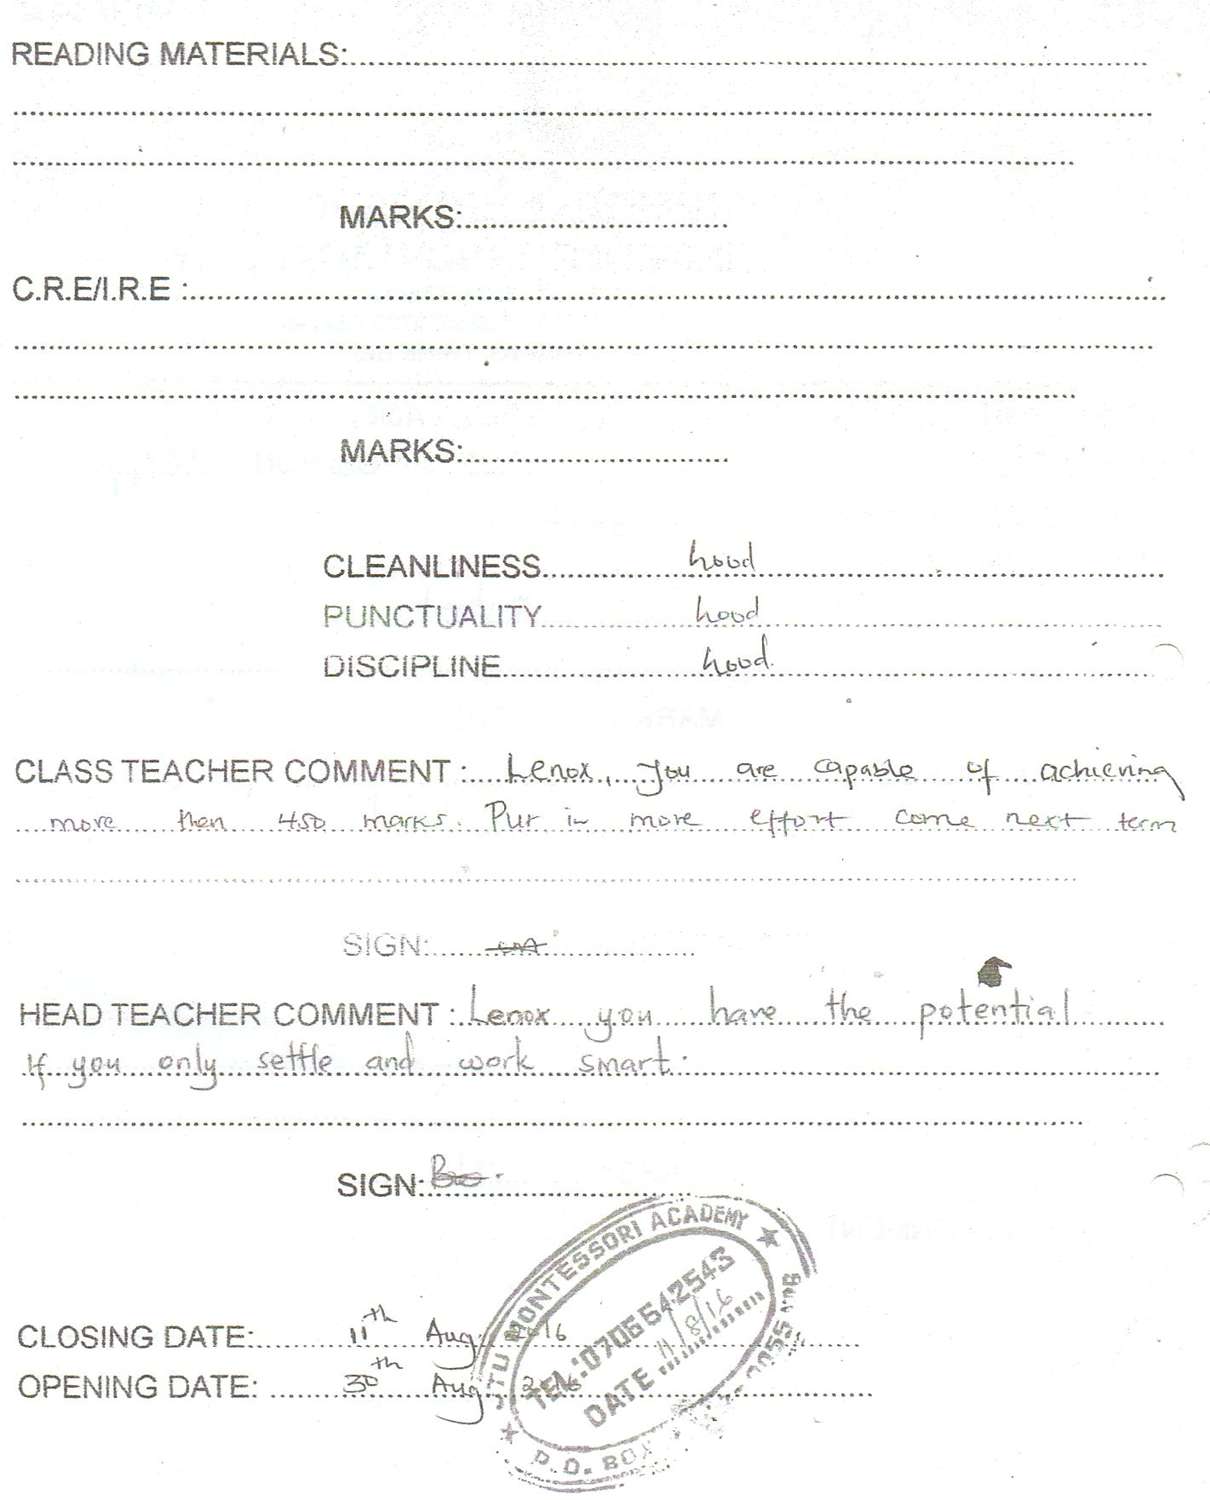 READING MATERIALS:
MARKS:
C.R.E/I.R.E :
MARKS:
CLEANLINESS Good
PUNCTUALITY Good
DISCIPLINE Good.
CLASS TEACHER COMMENT : Lenox, you are capable of achieving
more then 450 marks. Put in more effort come next term
SIGN:
HEAD TEACHER COMMENT : Lenox you have the potential
If you only settle and work smart.
SIGN:
MONTESSORI ACADEMY
TEL.:0706642543
DATE 11/8/16
P.O. BOX
CLOSING DATE: 11th Aug 2016
OPENING DATE: 30th Aug 2016